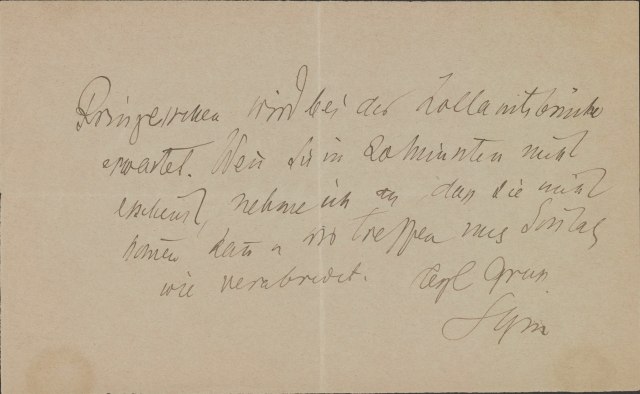 Prinzesschen wird bei der Zollamtsbrücke
erwartet. Wen Sie in 20 Minuten nicht
erscheint, nehme ich an dass Sie nicht
komen kan u wir treffen uns Sontag
wie verabredet. Gruss